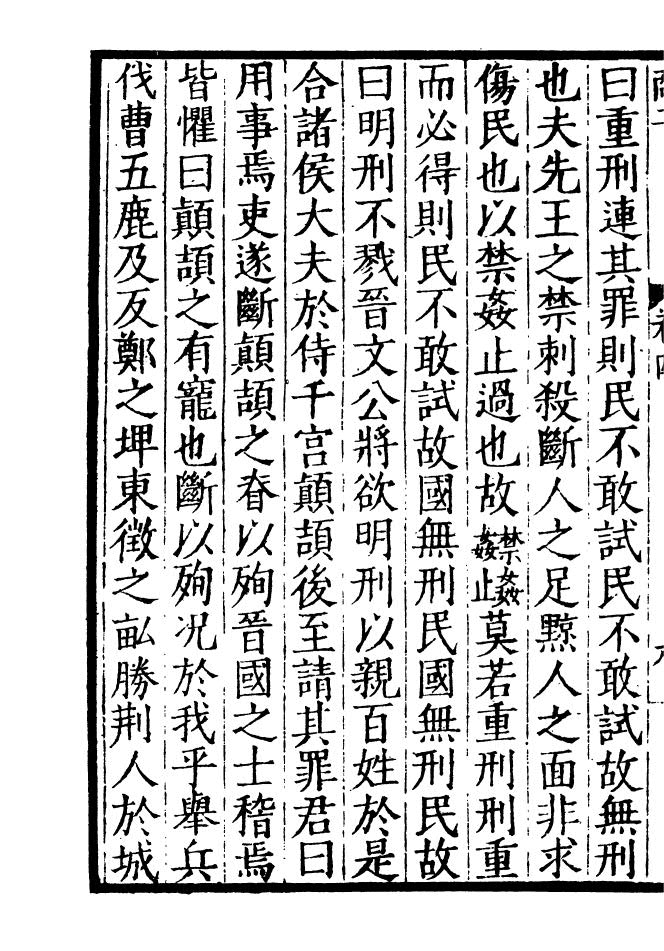 曰重刑連其罪則民不敢試民不敢試故無刑
也夫先王之禁刺殺斷人之足黥人之面非求
傷民也以禁姦止過也故禁姦姦止莫若重刑刑重
而必得則民不敢試故國無刑民國無刑民故
曰明刑不戮晉文公將欲明刑以親百姓於是
合諸侯大夫於侍千宫顛頡後至請其罪君曰
用事焉吏遂斷顛頡之脊以殉晉國之士稽焉
皆懼曰顛頡之有寵也斷以殉况於我乎舉兵
伐曹五鹿及反鄭之埤東徵之畝勝荆人於城